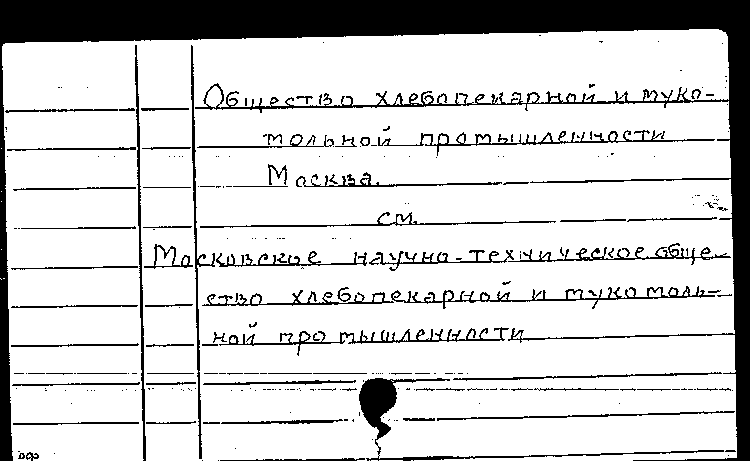 Общество хлебопекарной и муко-
мольной промышленности
Москва.
см.
Московское научно-техническое обще-
ство хлебопекарной и мукомоль-
ной промышленности